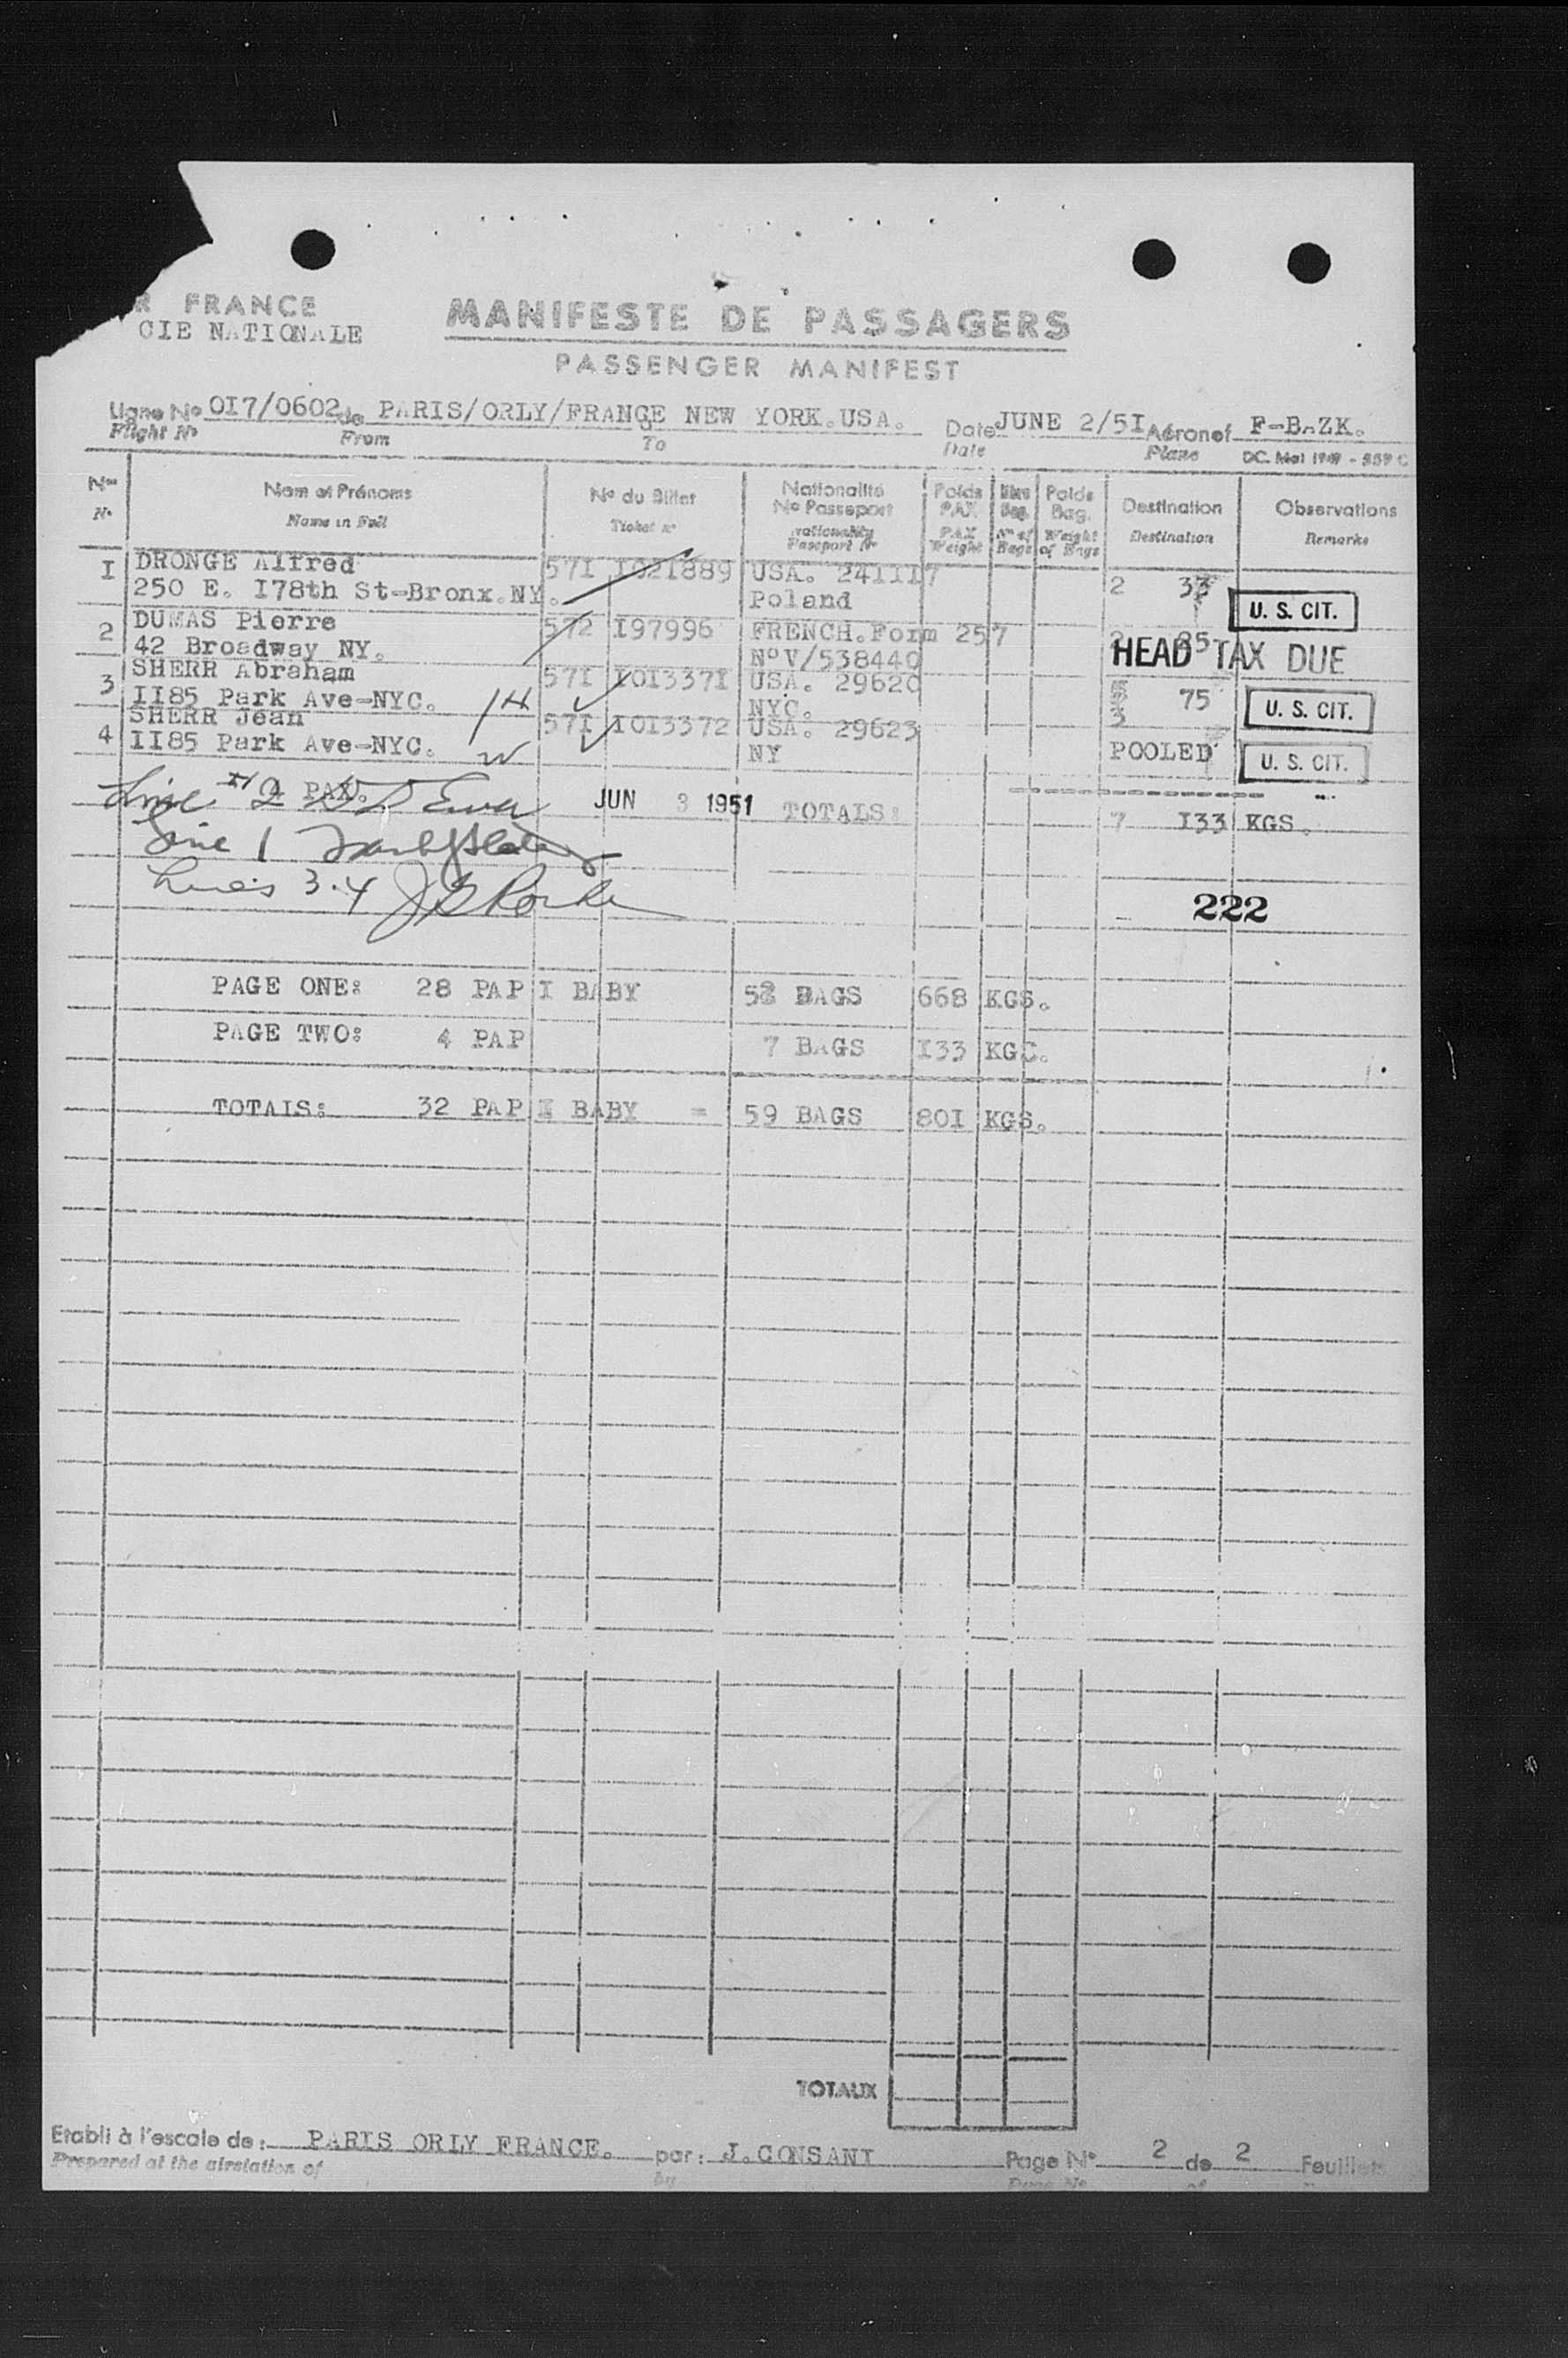 R FRANCE
CIE NATIONALE
MANIFESTE DE PASSAGERS
PASSENGER MANIFEST
Ligne No 0I7/0602 de PARIS/ORLY/FRANCE à NEW YORK.USA. Date JUNE 2/5I Aéronef F-BAZK.
Flight No From To Date Plane DC. Mai 1949 -
Nos Nom et Prénoms No du Billet Nationalité No Passeport Poids PAX Bag. Poids Bag. Destination Observations
N. Name in Full Ticket no Nationality Passport No PAX Weight No of Bags Weight of Bags Destination Remarks
I DRONGE Alfred 57I I02I889 USA. 24III7 2 33
250 E. I78th St-Bronx.NY. Poland U. S. CIT.
2 DUMAS Pierre 572 I97996 FRENCH.Form 257 2 25
42 Broadway NY. NoV/538440 HEAD TAX DUE
3 SHERR Abraham 57I I0I337I USA. 29620 75
II85 Park Ave-NYC. NYC. 3 U. S. CIT.
4 SHERR Jean 57I I0I3372 USA. 29623
II85 Park Ave-NYC. NY POOLED U. S. CIT.
PAX. JUN 3 1951 TOTALS: 7 I33 KGS.
Line 2
Line 1
Lines 3.4
222
PAGE ONE: 28 PAP I BABY 52 BAGS 668 KGS.
PAGE TWO: 4 PAP 7 BAGS I33 KGS.
TOTALS: 32 PAP I BABY = 59 BAGS 80I KGS.
TOTAUX
Etabli à l'escale de: PARIS ORLY FRANCE. par: J.CONSANT Page No 2 de 2 Feuillets
Prepared at the airstation of by Page No of